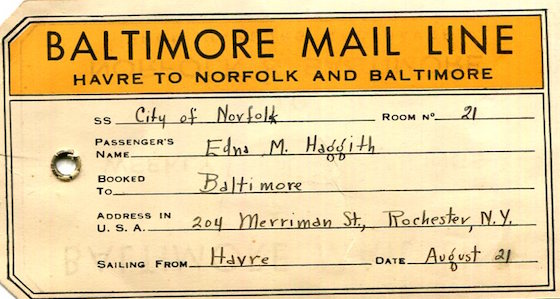 BALTIMORE MAIL LINE
HAVRE TO NORFOLK AND BALTIMORE
SS City of Norfolk ROOM Nº 21
PASSENGER'S
NAME Edna M. Haggith
BOOKED
TO Baltimore
ADDRESS IN
U. S. A. 204 Merriman St., Rochester, N.Y.
SAILING FROM Havre DATE August 21